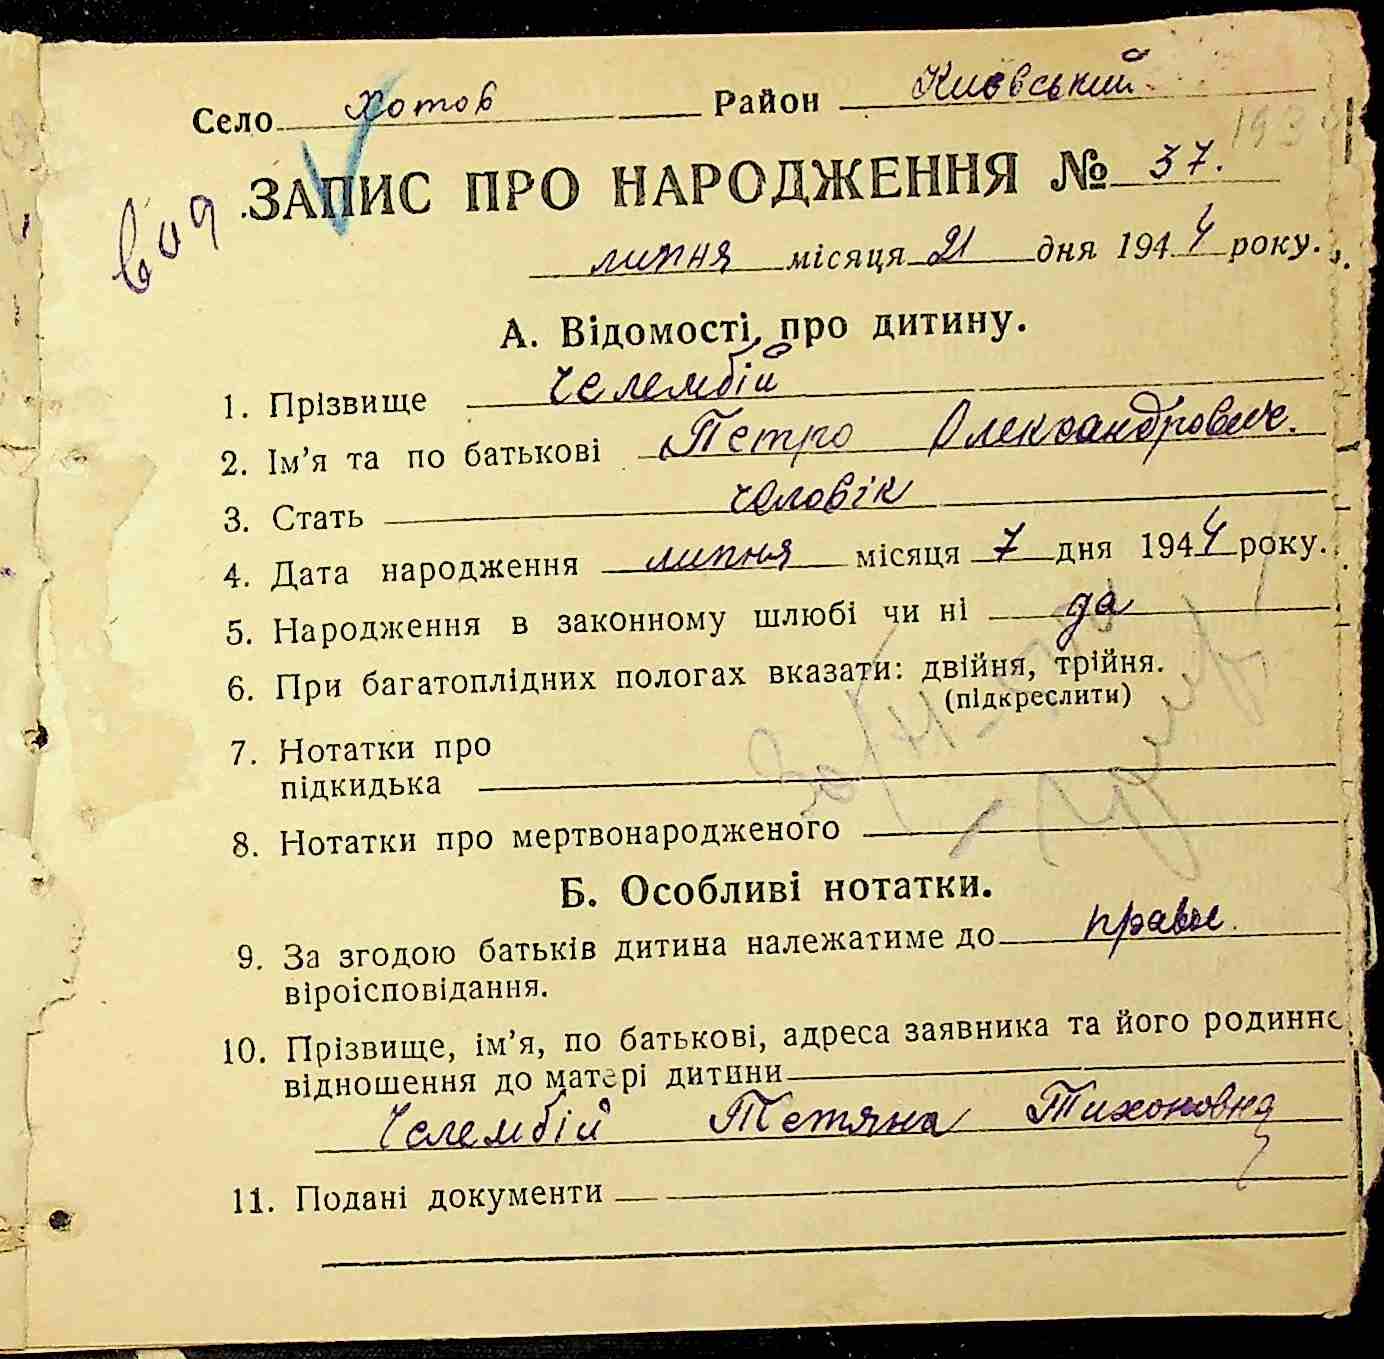 Село Хотов Район Киевський
ЗАПИС ПРО НАРОДЖЕННЯ № 37.
липня місяця 21 дня 1944 року.
А. Відомості про дитину.
1. Прізвище Челембій
2. Ім'я та по батькові Петро Олександрович.
3. Стать чоловік
4. Дата народження липня місяця 7 дня 1944 року.
5. Народження в законному шлюбі чи ні да
6. При багатоплідних пологах вказати: двійня, трійня.
(підкреслити)
7. Нотатки про
підкидька
8. Нотатки про мертвонародженого
Б. Особливі нотатки.
9. За згодою батьків дитина належатиме до правос.
віроісповідання.
10. Прізвище, ім'я, по батькові, адреса заявника та його родинне
відношення до матері дитини
Челембій Тетяна Тихоновна
11. Подані документи